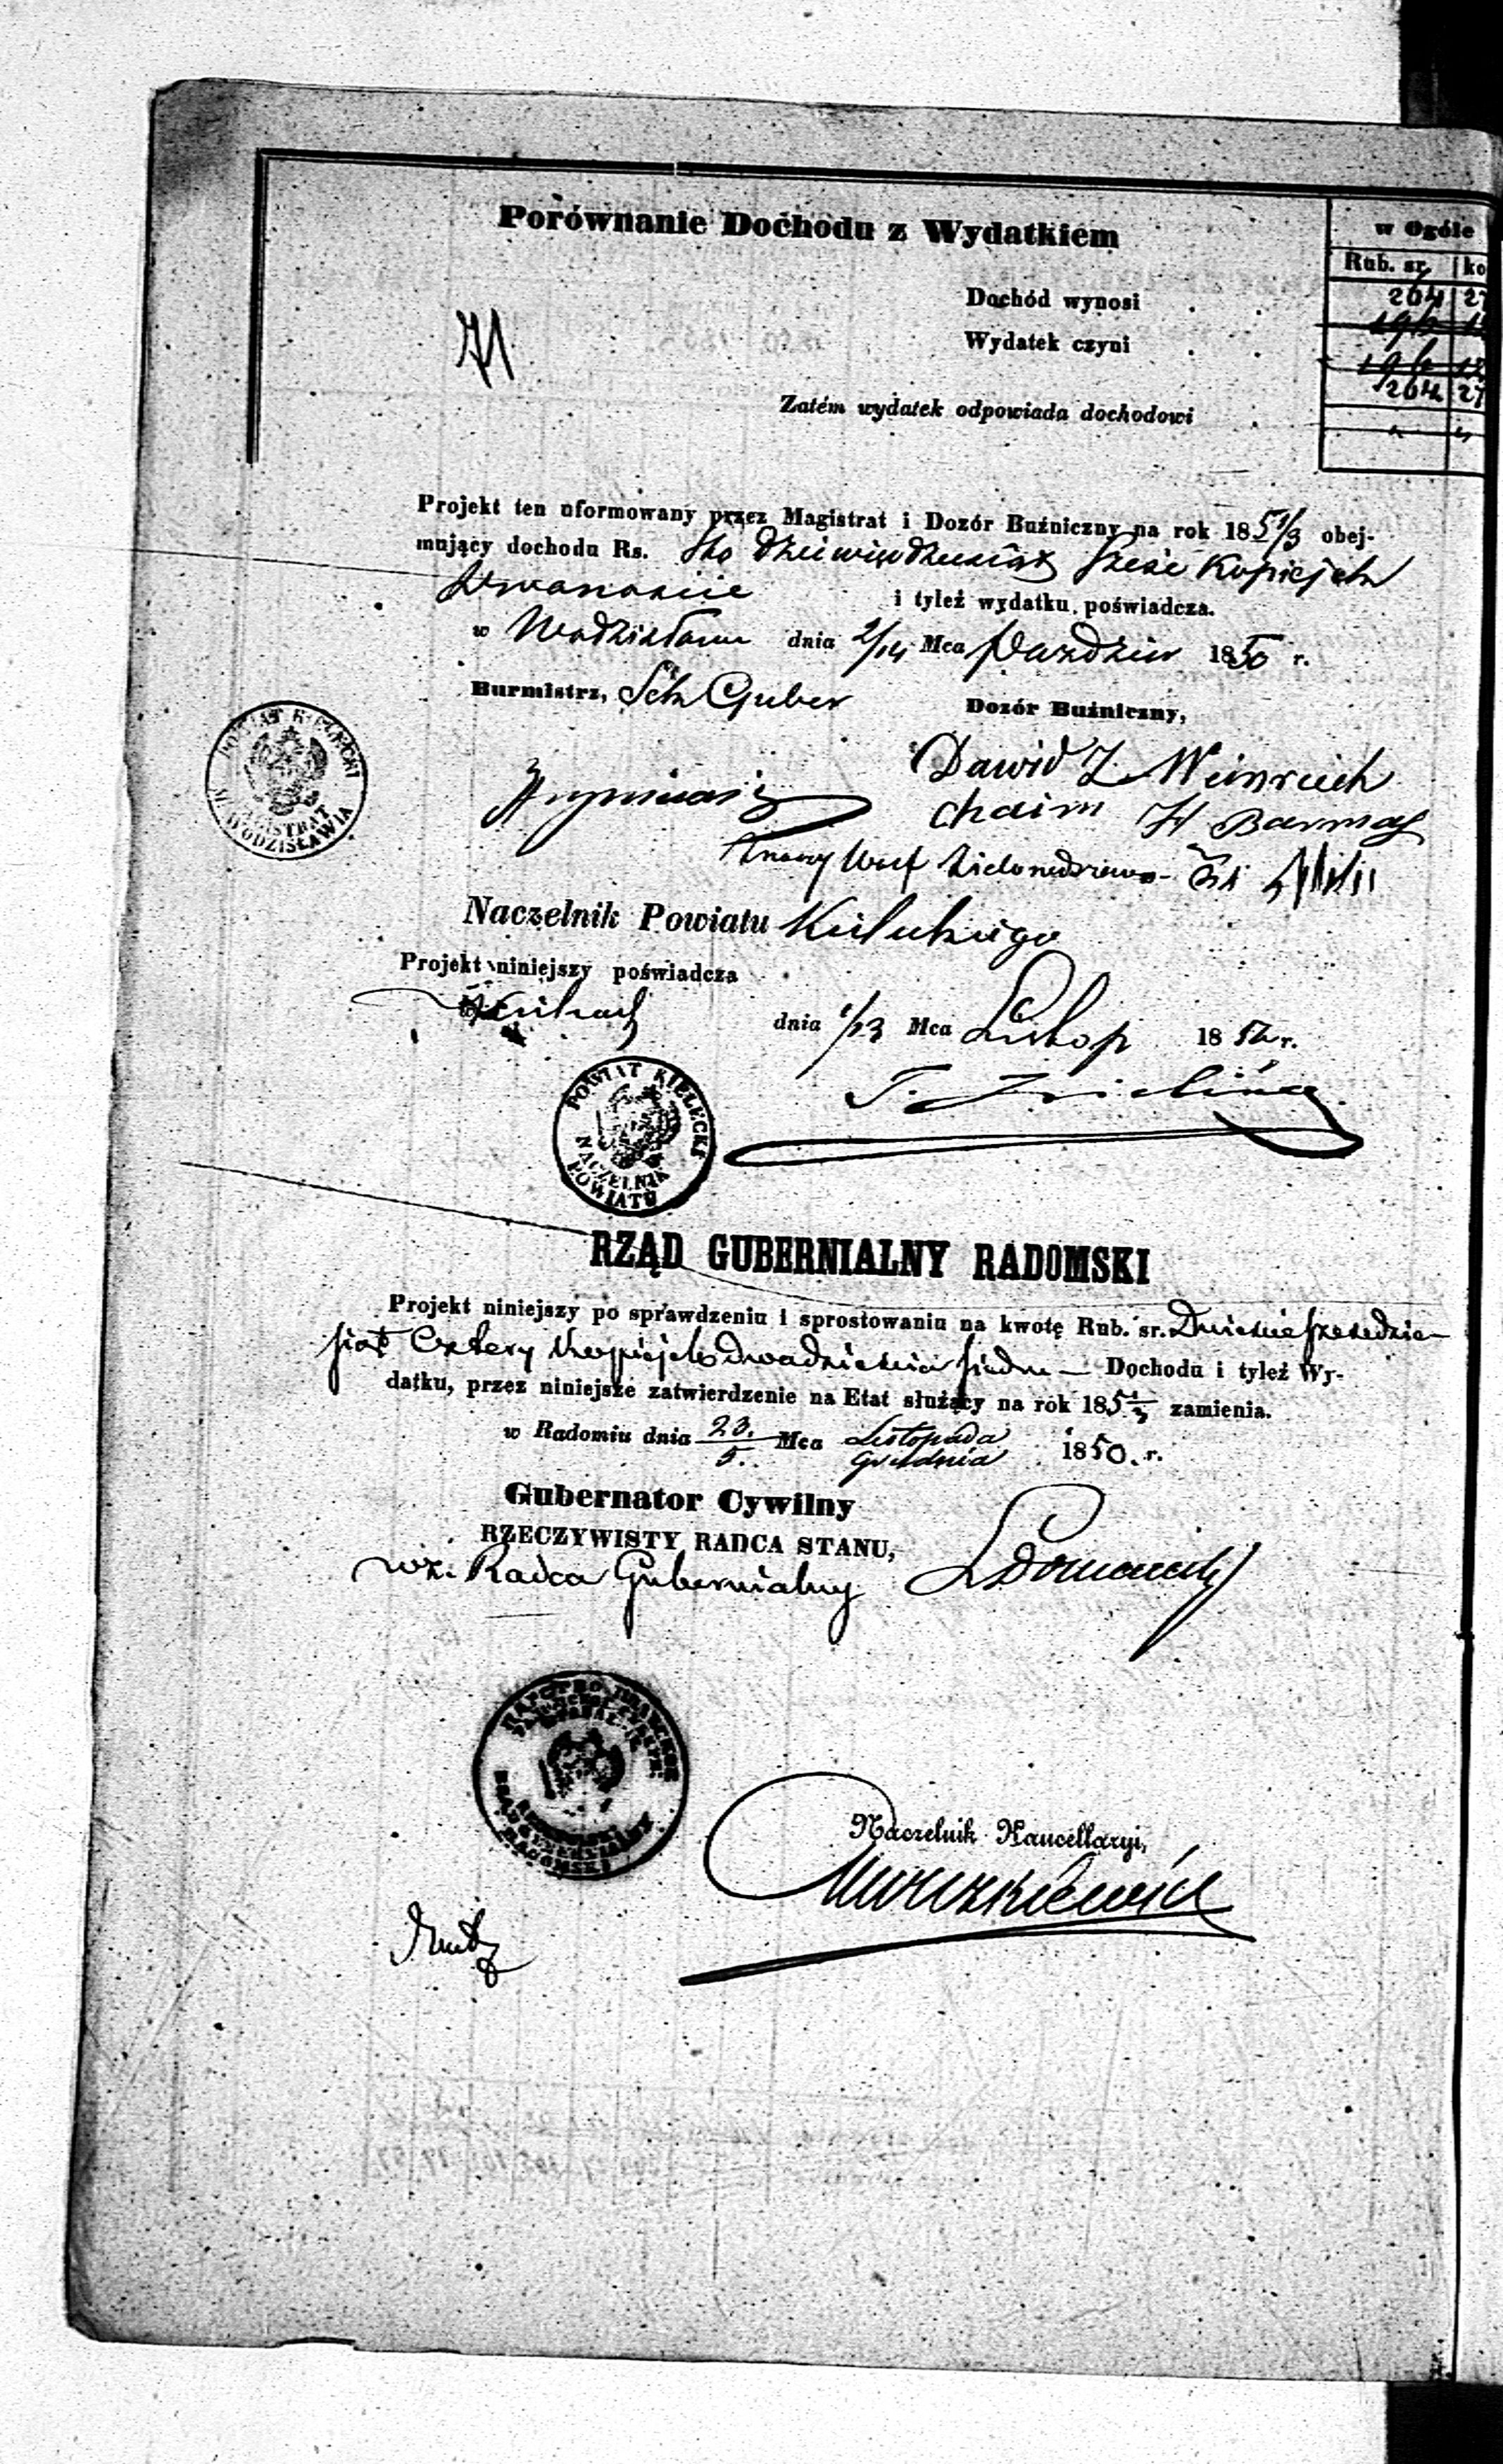 Porównanie Dochodu z Wydatkiem
w Ogóle
Rub. sr. ko
Dochód wynosi . . 264 27
Wydatek czyni . . 196 12
196 12
264 27
Zatém wydatek odpowiada dochodowi .
Projekt ten uformowany przez Magistrat i Dozór Buźniczny na rok 185 1/3 obej-
mujący dochodu Rs. Sto Dziewięćdziesiąt Sześć Kopiejek
Dwanaście i tyleż wydatku, poświadcza.
w Wodzisławiu dnia 2/14 Mca Paździer 1850 r.
Burmistrz, Dozór Buźniczny,
POWIAT KIELECKI
MAGISTRAT
M. WODZISŁAWIA
Dawid Z. Weinreich
Chaim H Barmas
Naczelnik Powiatu Kieleckiego
Projekt niniejszy poświadcza
dnia 1/13 Mca Listop 1850 r.
POWIAT KIELECKI
NACZELNIK
POWIATU
T. Zielinski
RZĄD GUBERNIALNY RADOMSKI
Projekt niniejszy po sprawdzeniu i sprostowaniu na kwotę Rub. sr. Dwieście sześćdzie-
siąt Cztery Kopiejek dwadzieścia siedm — Dochodu i tyleż Wy-
datku, przez niniejsze zatwierdzenie na Etat służący na rok 185 1/3 zamienia.
w Radomiu dnia 23./5. Mca Listopada/Grudnia 1850. r.
Gubernator Cywilny
RZECZYWISTY RADCA STANU,
wz. Radca Gubernialny
RZĄD GUBERNIALNY
RADOMSKI
Naczelnik Kancellaryi,